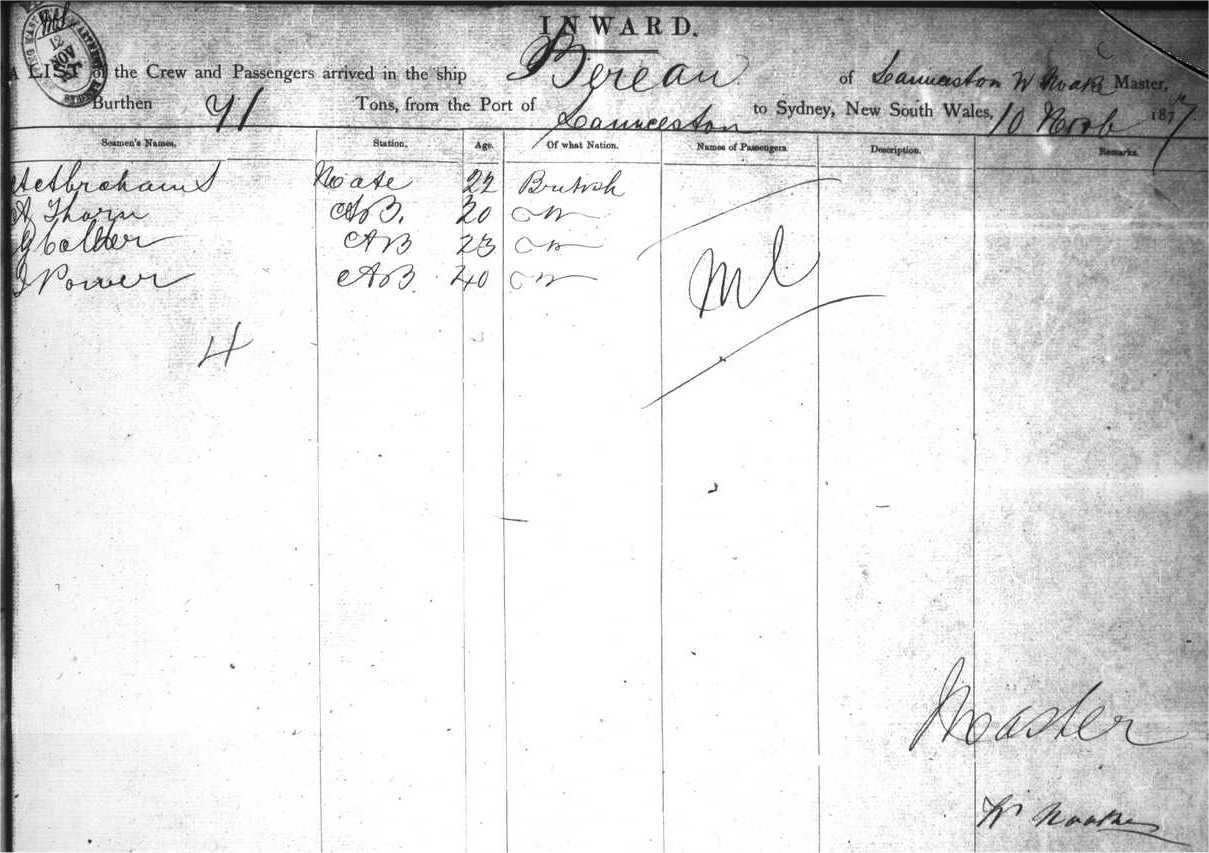 INWARD.
A LIST of the Crew and Passengers arrived in the ship Berean of Launceston W Noake Master,
Burthen 41 Tons, from the Port of Launceston to Sydney, New South Wales, 10 Novb 1877
Seamen's Names. Station. Age. Of what Nation. Names of Passengers Description. Remarks.
Abrahams Mate 22 British
A Thorn AB. 30 Do
G Collier AB 23 Do
J Power AB. 40 Do
Nil
4
Master
W Noake